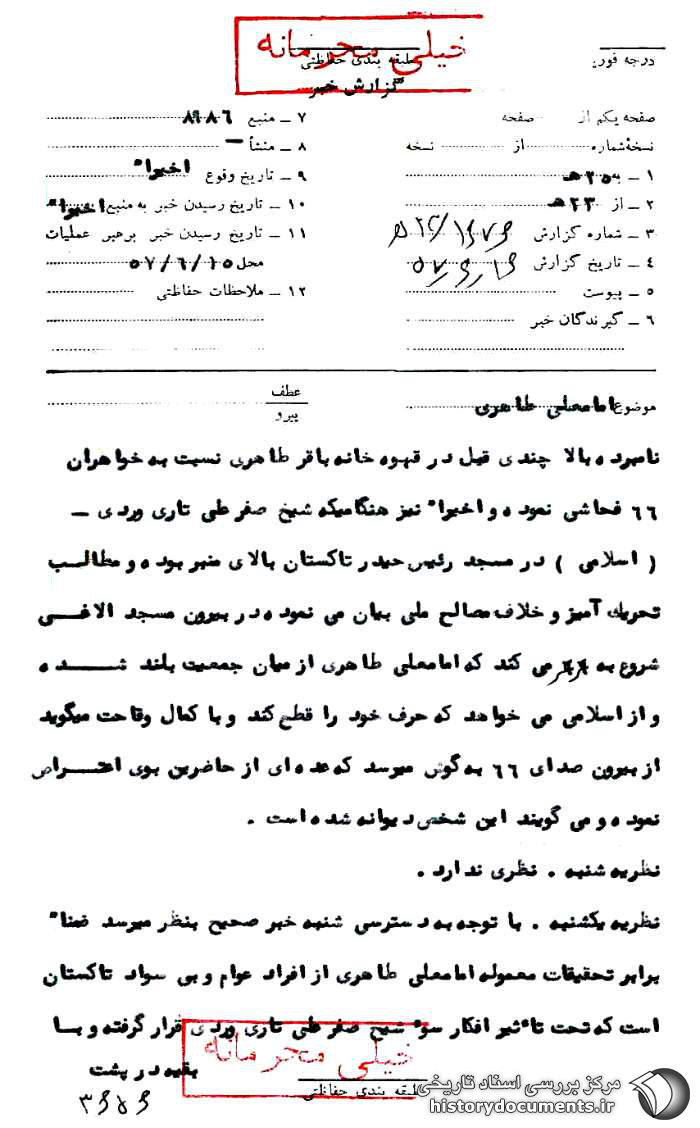 خیلی محرمانه
درجه فوری
طبقه بندی حفاظتی
گزارش خبر
صفحه یکم از صفحه
نسخهٔ شماره از نسخه
۱ ـ به ۲۵۰هـ
۲ ـ از ۲۳هـ
۳ ـ شماره گزارش
۴ ـ تاریخ گزارش
۵ ـ پیوست
۶ ـ گیرندگان خبر
۷ ـ منبع ۸۹۸۶
۸ ـ منشأ ـ
۹ ـ تاریخ وقوع اخیراً
۱۰ ـ تاریخ رسیدن خبر به منبع اخیراً
۱۱ ـ تاریخ رسیدن خبر برهبر عملیات
محل ۵۷/۶/۱۵
۱۲ ـ ملاحظات حفاظتی
موضوع امامعلی طاهری
عطف
پیرو
نامبرده بالا چندی قبل در قهوه خانه باقر طاهری نسبت به خواهران
۶۶ فحاشی نموده و اخیراً نیز هنگامیکه شیخ صفرعلی تاری وردی ـ
( اسلامی ) در مسجد رئیس حیدر تاکستان بالای منبر بوده و مطالب
تحریک آمیز و خلاف مصالح ملی بیان می نموده در بیرون مسجد الاغی
شروع به عرعر می کند که امامعلی طاهری از میان جمعیت بلند شده
و از اسلامی می خواهد که حرف خود را قطع کند و با کمال وقاحت میگوید
از بیرون صدای ۶۶ به گوش میرسد که عده ای از حاضرین بوی اعتراض
نموده و می گویند این شخص دیوانه شده است .
نظریه شنبه . نظری ندارد .
نظریه یکشنبه . با توجه به دسترسی شنبه خبر صحیح بنظر میرسد ضمناً
برابر تحقیقات معموله امامعلی طاهری از افراد عوام و بی سواد تاکستان
است که تحت تأثیر افکار سوء شیخ صفرعلی تاری وردی قرار گرفته و بسا
بقیه در پشت
خیلی محرمانه
طبقه بندی حفاظتی
مرکز بررسی اسناد تاریخی
historydocuments.ir